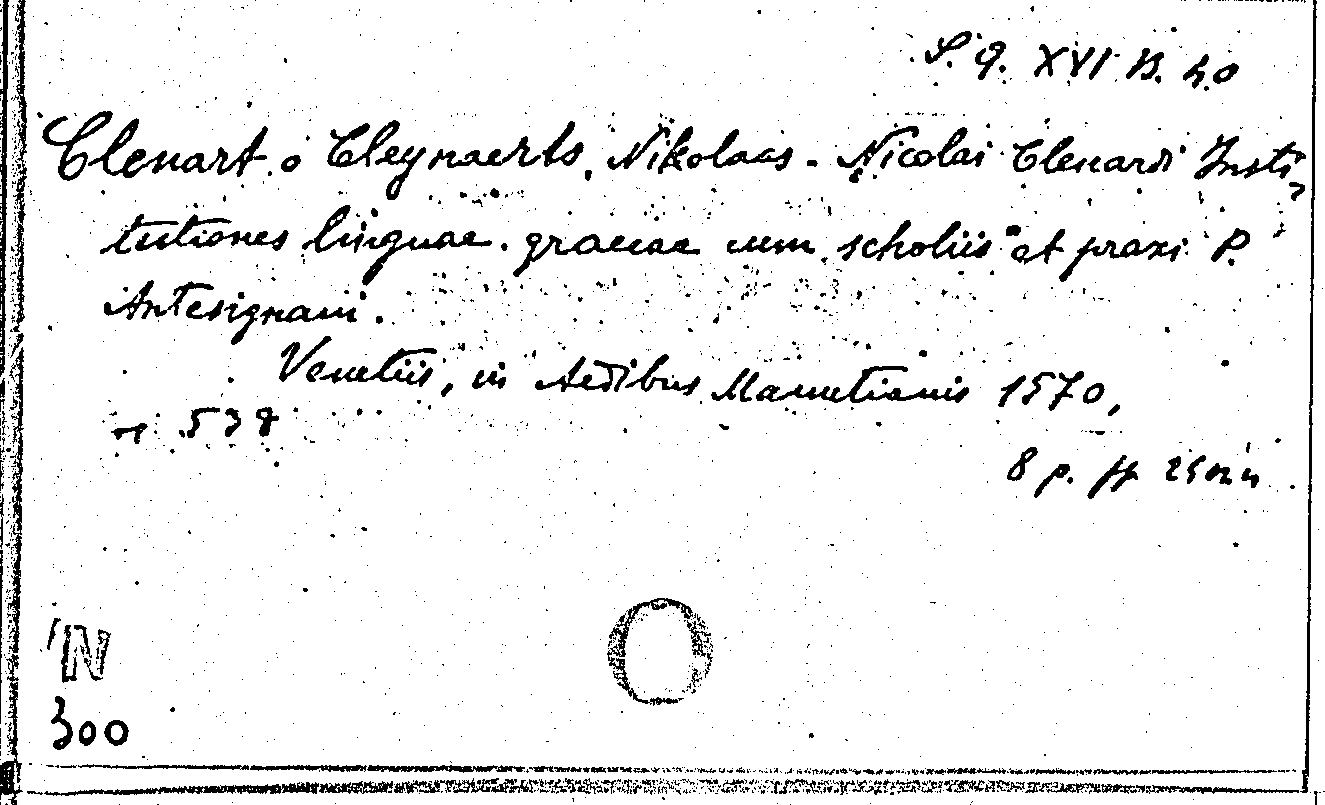 S. Q. XVI B. 40
Clenart o Cleynaerts, Nikolaas - Nicolai Clenardi Insti-
tutiones linguae graecae cum scholiis et praxi P.
Antesignani.
Venetiis, in Aedibus Manutianis 1570,
538
8 p. ff
N
300